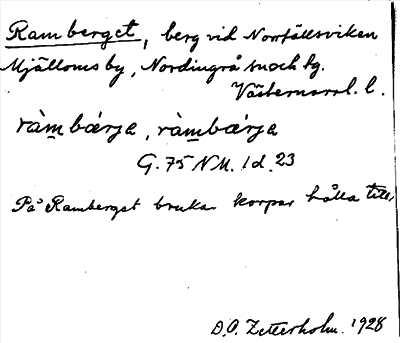 Ramberget, berg vid Norrfällsviken
Mjälloms by, Nordingrå sn och tg.
Västernorrl. l.
ràm̲bǽrja, ràm̲bǽrja
G. 75 N M. 1 d. 23
På Ramberget brukar korpar hålla till.
D. O. Zetterholm. 1928